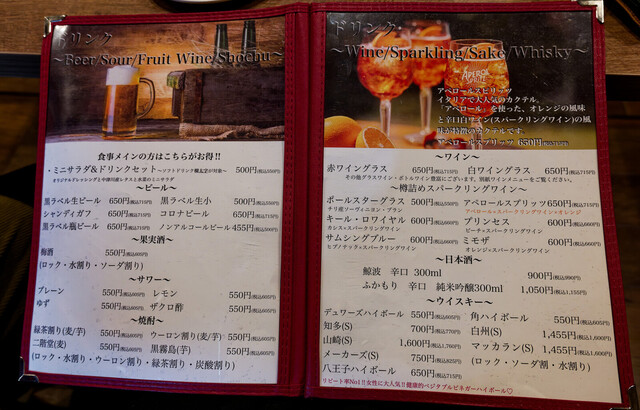 ドリンク
～Beer/Sour/Fruit Wine/Shochu～
食事メインの方はこちらがお得!!
・ミニサラダ&ドリンクセット 500円(税込550円)
～ビール～
黒ラベル生ビール 650円(税込715円) 黒ラベル生小 500円(税込550円)
シャンディガフ 650円(税込715円) コロナビール 650円(税込715円)
黒ラベル瓶ビール 650円(税込715円) ノンアルコールビール 455円(税込500円)
～果実酒～
梅酒 550円(税込605円)
(ロック・水割り・ソーダ割り)
～サワー～
プレーン 550円(税込605円) レモン 550円(税込605円)
ゆず 550円(税込605円) ザクロ酢 550円(税込605円)
～焼酎～
緑茶割り(麦/芋) 550円(税込605円) ウーロン割り(麦/芋) 550円(税込605円)
二階堂(麦) 550円(税込605円) 黒霧島(芋) 550円(税込605円)
(ロック・水割り・ウーロン割り・緑茶割り・炭酸割り)
ドリンク
～Wine/Sparkling/Sake/Whisky～
APEROL
アペロールスピリッツ
イタリアで大人気のカクテル。
「アペロール」を使った、オレンジの風味
と辛口白ワイン(スパークリングワイン)の風
味が特徴のカクテルです。
アペロールスプリッツ 650円(税込715円)
～ワイン～
赤ワイングラス 650円(税込715円) 白ワイングラス 650円(税込715円)
その他グラスワイン・ボトルワイン豊富にございます。別紙ワインメニューをご覧ください。
～樽詰めスパークリングワイン～
ポールスターグラス 550円(税込605円) アペロールスプリッツ 650円(税込715円)
チリ産ソーヴィニヨン・ブラン アペロール×スパークリングワイン×オレンジ
キール・ロワイヤル 600円(税込660円) プリンセス 600円(税込660円)
カシス×スパークリングワイン ピーチ×スパークリングワイン
サムシングブルー 600円(税込660円) ミモザ 600円(税込660円)
ヒプノティック×スパークリングワイン オレンジ×スパークリングワイン
～日本酒～
鯨波 辛口 300ml 900円(税込990円)
ふかもり 辛口 純米吟醸300ml 1,050円(税込1,155円)
～ウイスキー～
デュワーズハイボール 550円(税込605円) 角ハイボール 550円(税込605円)
知多(S) 700円(税込770円) 白州(S) 1,455円(税込1,600円)
山崎(S) 1,600円(税込1,760円) マッカラン(S) 1,455円(税込1,600円)
メーカーズ(S) 750円(税込825円) (ロック・ソーダ割・水割)
八王子ハイボール 650円(税込715円)
リピート率No1!!女性に大人気!!健康的ベジタブルビネガーハイボール♡